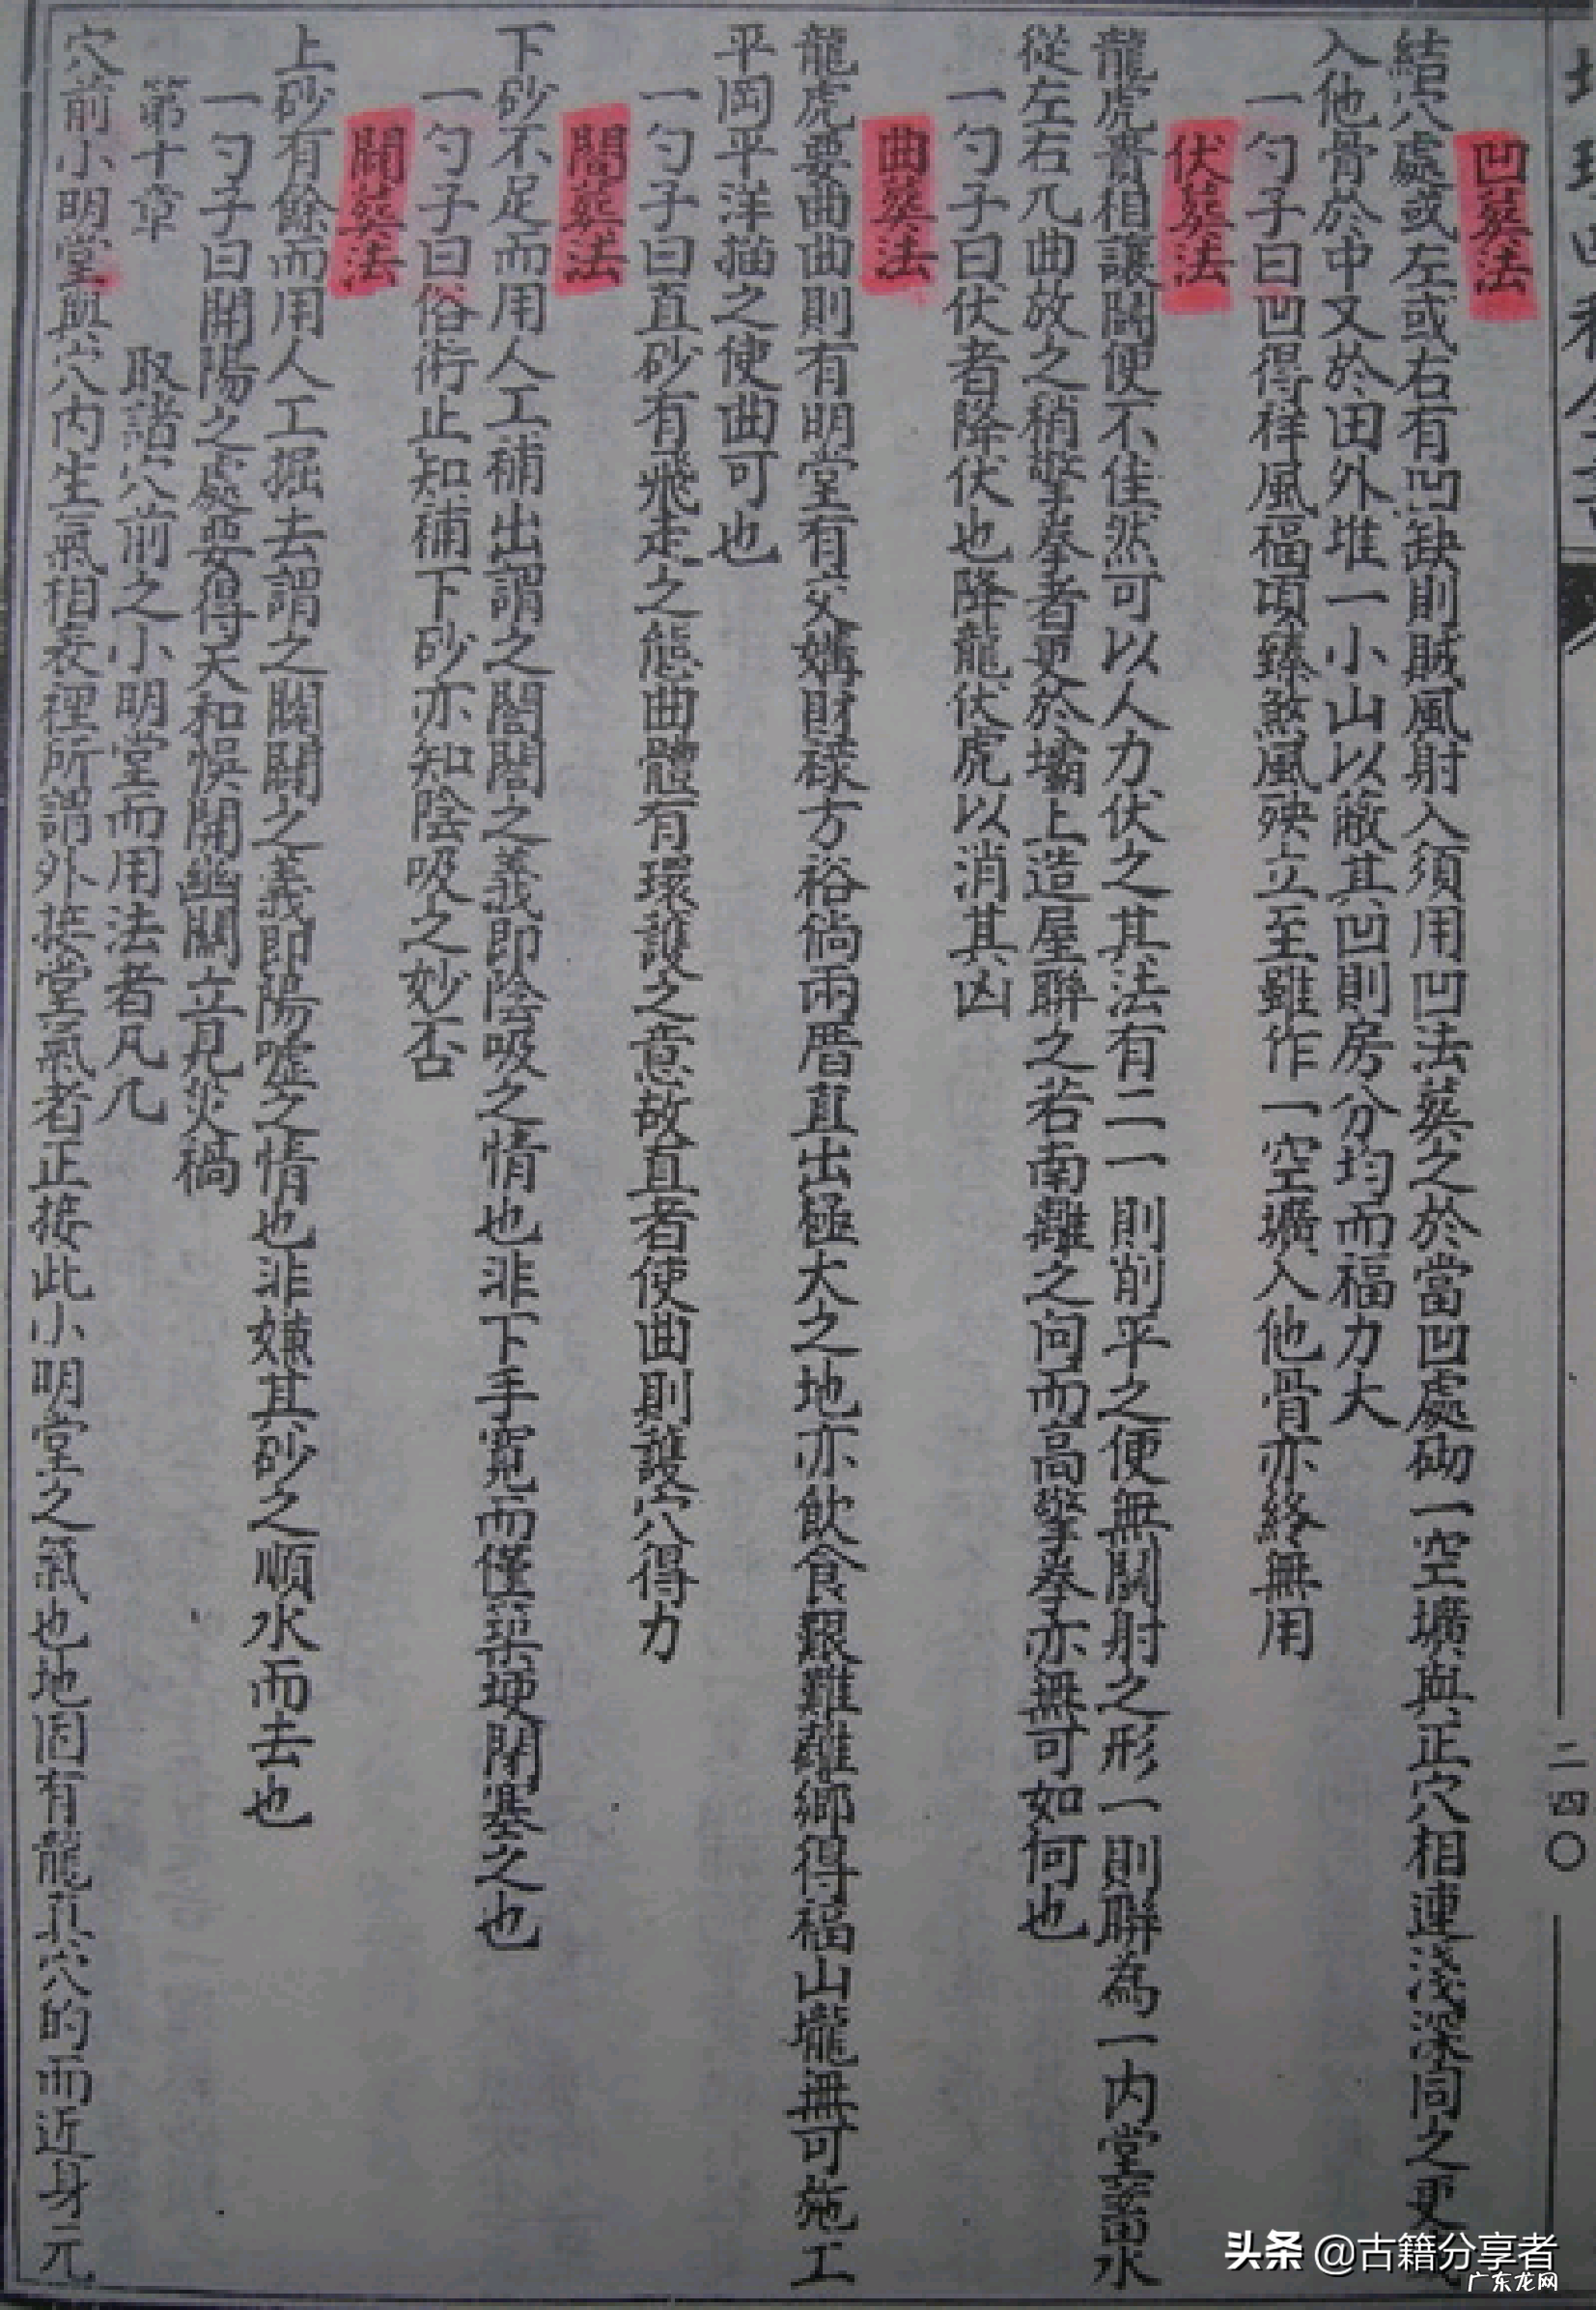 二四〇
凹葬法
結穴處或左或右有凹缺則賊風射入須用凹法葬之於當凹處砌一空壙與正穴相連淺深同之更
入他骨於中又於田外堆一小山以蔽其凹則房分均而福力大
一勺子曰凹得祥風福頃臻煞風殃立至雖作一空壙入他骨亦終無用
伏葬法
龍虎賓相讓鬪便不佳然可以人力伏之其法有二一則削平之便無鬪射之形一則聯為一内堂蓄水
從左右兀曲放之稍擎拳者更於壩上造屋聯之若南離之向而高擎拳亦無可如何也
一勺子曰伏者降伏也降龍伏虎以消其凶
曲葬法
龍虎要曲曲則有明堂有交媾財祿方裕倘兩曆直出極大之地亦飲食艱難離鄉得福山壠無可施工
平岡平洋描之使曲可也
一勺子曰直砂有飛走之態曲體有環護之意故直者使曲則護穴得力
闔葬法
下砂不足而用人工補出謂之闔闔之義即陰吸之情也非下手寬而僅築埂閉塞之也
一勺子曰俗術止知補下砂亦知陰吸之妙否
闢葬法
上砂有餘而用人工掘去謂之闢闢之義即陽噓之情也非嫌其砂之順水而去也
一勺子曰開陽之處要得天和悞開幽關立見災禍
第十章 取諸穴前之小明堂而用法者凡几
穴前小明堂與穴内生氣相表裡所謂外接堂氣者正接此小明堂之氣也地固有龍真穴的而近身元
头条 @古籍分享者
广东龙网